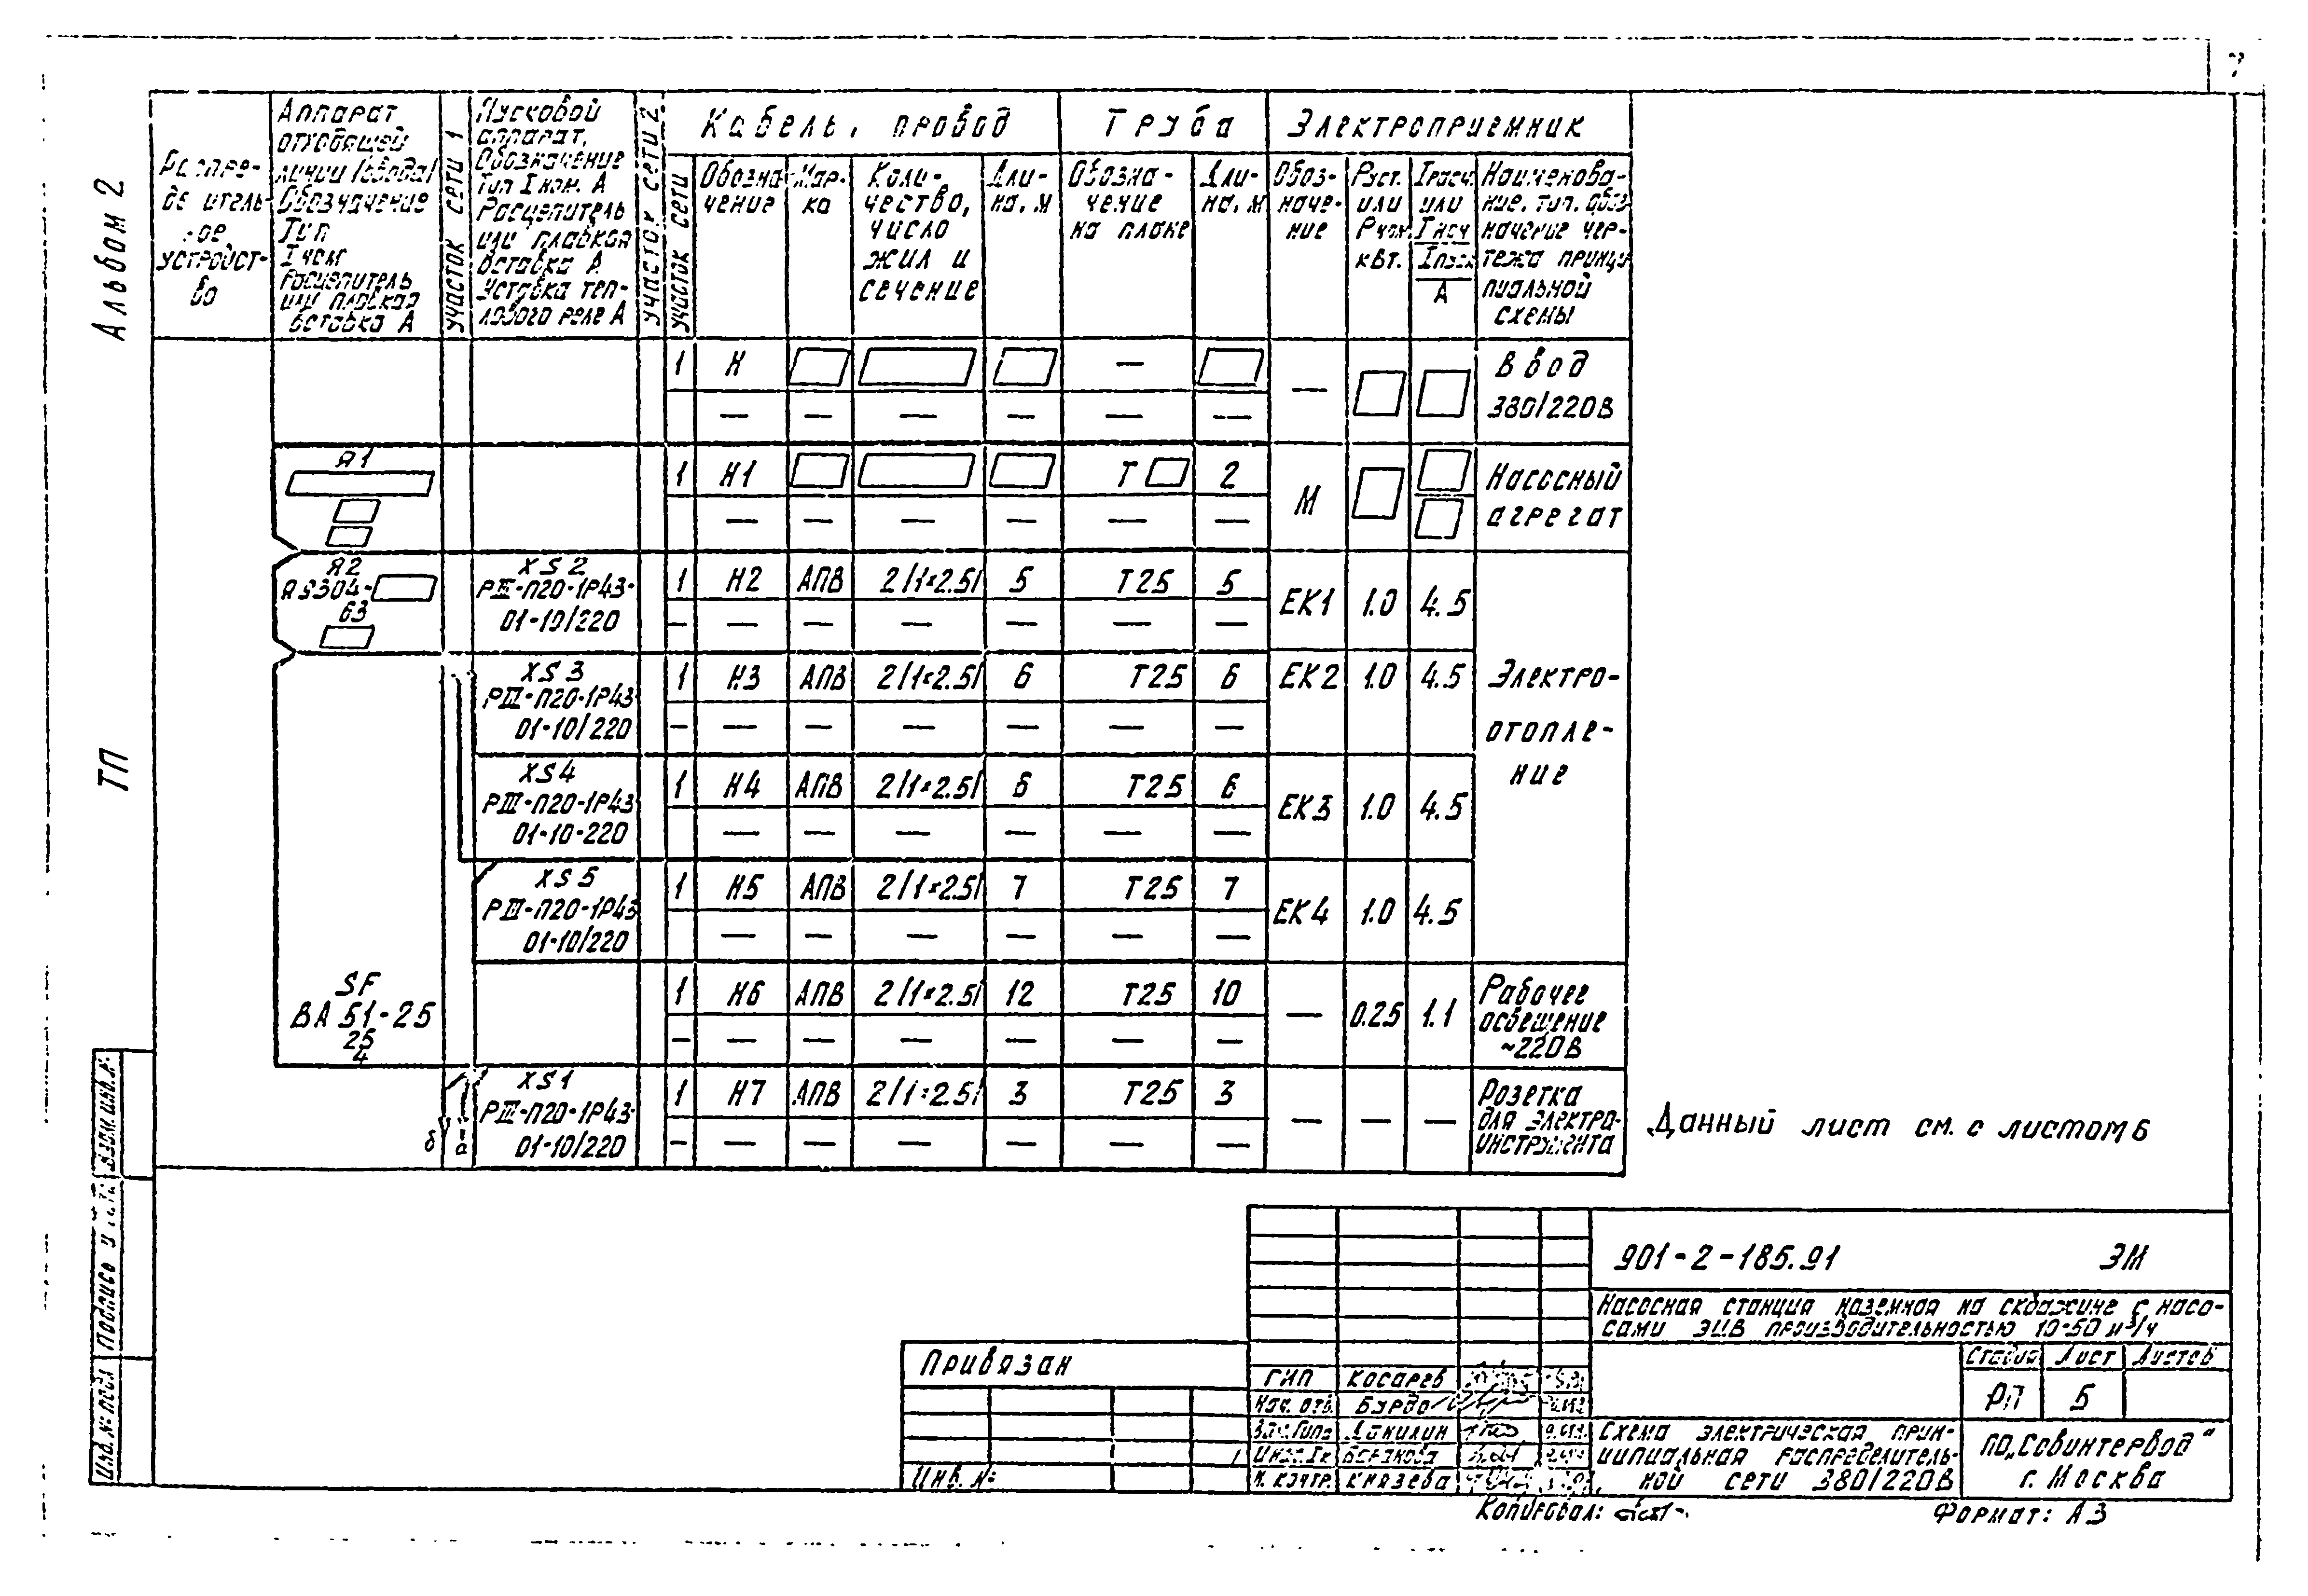 7
Альбом 2
ТП
Распре-
де итель-
ное
устройст-
во
Аппарат
отходящей
линии (ввода)
Обозначение
Тип
I ном
Расцепитель
или плавкая
вставка А
Участок сети 1
Пусковой
аппарат,
Обозначение
тип I ном. А
Расцепитель
или плавкая
вставка А
Уставка теп-
лового реле А
Участок сети 2
Кабель, провод
Участок сети
Обозна-
чение
Мар-
ка
Коли-
чество,
число
жил и
сечение
Дли-
на, м
Труба
Обозна-
чение
на плане
Дли-
на, м
Электроприемник
Обоз-
наче-
ние
Руст.
или
Рном.
кВт.
Iрасч.
или
Iном
Iпуск
А
Наименова-
ние, тип, обоз-
начение чер-
тежа принци-
пиальной
схемы
1 Н —
— — — — — —
— Ввод
380/220В
Я1
1 Н1 Т 2
— — — — — —
М Насосный
агрегат
Я2
ЯS304-
63
XS2
РШ-П20-1Р43-
01-10/220
1 Н2 АПВ 2(1×2.5) 5 Т25 5
— — — — — — —
ЕК1 1.0 4.5
XS3
РШ-П20-1Р43
01-10/220
1 Н3 АПВ 2(1×2.5) 6 Т25 6
— — — — — — —
ЕК2 1.0 4.5
Электро-
отопле-
ние
XS4
РШ-П20-1Р43
01-10-220
1 Н4 АПВ 2(1×2.5) 6 Т25 6
— — — — — —
ЕК3 1.0 4.5
XS5
РШ-П20-1Р43
01-10/220
1 Н5 АПВ 2(1×2.5) 7 Т25 7
— — — — — —
ЕК4 1.0 4.5
SF
ВА 51-25
25
4
1 Н6 АПВ 2(1×2.5) 12 Т25 10
— — — — — — —
— 0.25 1.1
Рабочее
освещение
~220В
б а
XS1
РШ-П20-1Р43-
01-10/220
1 Н7 АПВ 2(1×2.5) 3 Т25 3
— — — — — — —
— — —
Розетка
для электро-
инструмента
Данный лист см. с листом 6
Взам. инв. №
Подпись и дата
Инв. № подл
901-2-185.91 ЭМ
Насосная станция наземная на скважине с насо-
сами ЭЦВ производительностью 10-50 м³/ч
Привязан
Инв. №
ГИП Косарев
Нач. отд. Бурда
Данилин
Н. контр. Князева
Стадия Лист Листов
РП 5
Схема электрическая прин-
ципиальная распределитель-
ной сети 380/220В
ПО „Совинтервод“
г. Москва
Копировал:
Формат: А3